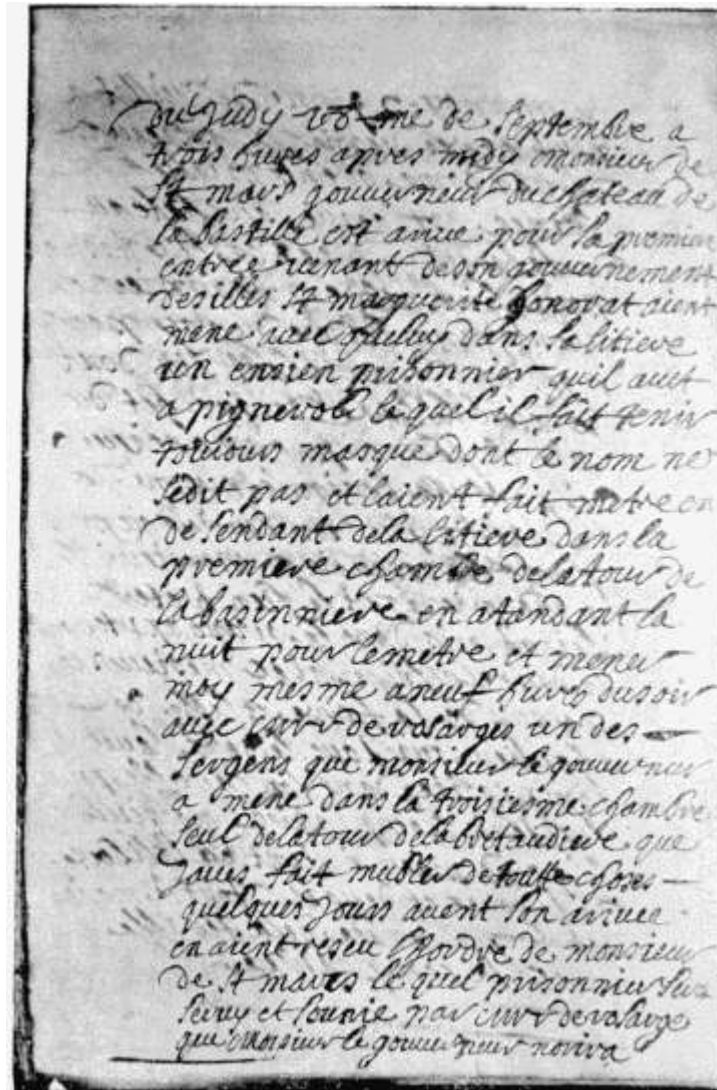 du Judy 18me de Septembre a
trois hures apres midy monsieur de
St mars gouverneur du chateau de
la bastille est arive pour sa premiere
entree venant de son gouvernement
des illes St marguerite honorat aient
mene avec queluy dans sa litiere
un ensien prisonnier quil avet
a pignerol le quel il fait tenir
toujours masque dont le nom ne
se dit pas et laient fait metre en
desendant de la litiere dans la
premiere chambre de la tour de
la basinniere en atandant la
nuit pour le metre et mener
moy mesme a neuf hures du soir
avec de rosarges un des
sergens que monsieur le gouverneur
a mene dans la troisiesme chambre
seul de la tour de la bretaudiere que
javes fait mubler de toutte choses
quelques jours avent son arivee
en aient reseu lhordre de monsieur
de St mars le quel prisonnier sera
servy et sounie par de rosarge
que monsieur le gouverneur norira